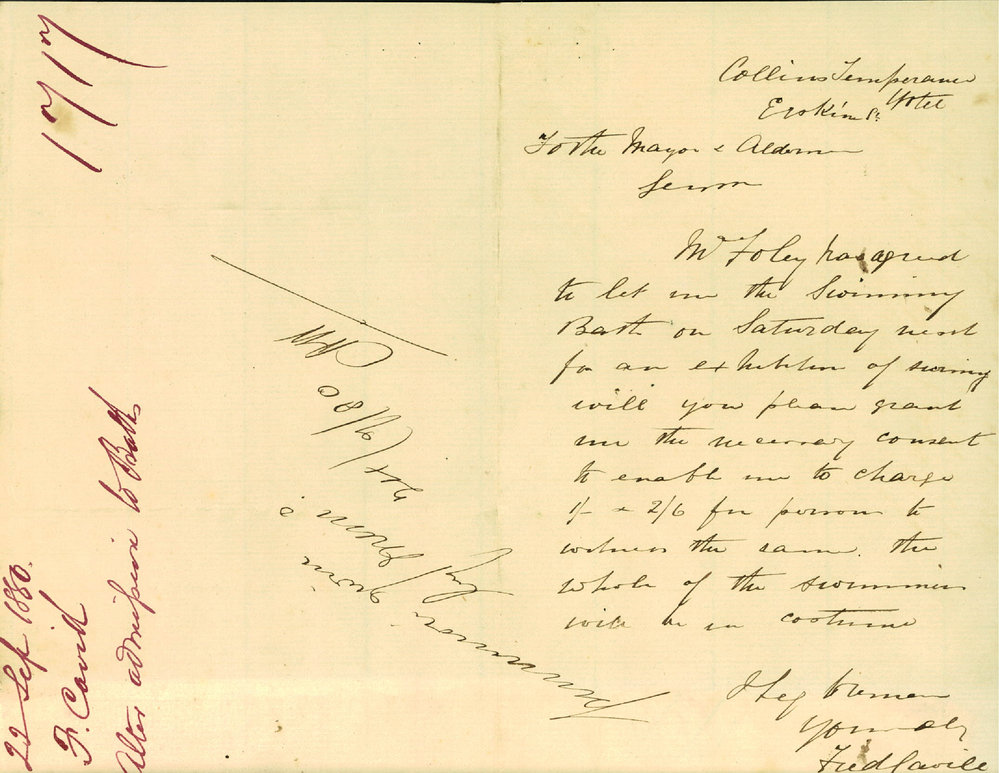 Collins Temperance
Hotel
Erskine St
To the Mayor & Aldermen
Mr Foley has agreed
to let me the Swimming
Bath on Saturday next
for an exhibition of swimming
will you please grant
me the necessary consent
to enable me to charge
1/- & 2/6 for persons to
witness the same. the
whole of the swimmers
will be in costume
I beg to remain
Yours
Fred Cavill
1717
22 Sep 1880.
F. Cavill
After admission to Baths
/9/80